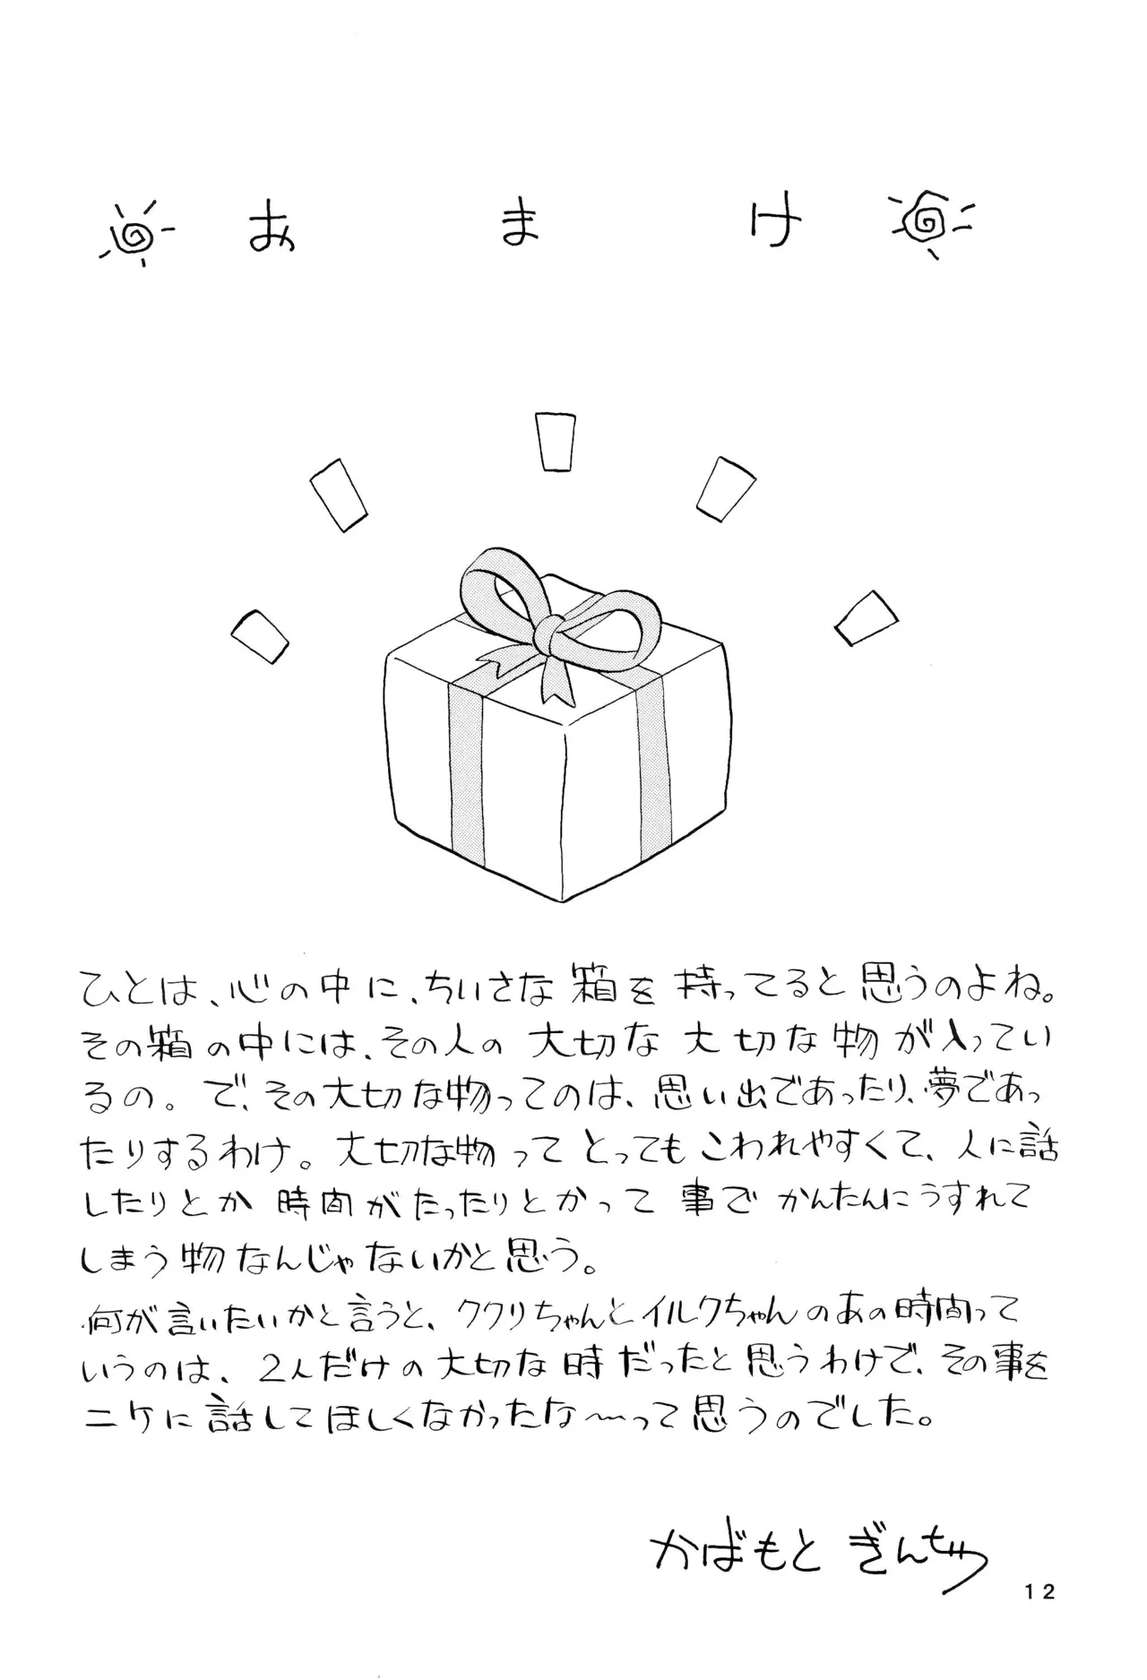 おまけ
ひとは、心の中に、ちいさな箱を持ってると思うのよね。
その箱の中には、その人の大切な大切な物が入ってい
るの。で、その大切な物ってのは、思い出であったり、夢であっ
たりするわけ。大切な物ってとってもこわれやすくて、人に話
したりとか時間がたったりとかって事でかんたんにうすれて
しまう物なんじゃないかと思う。
何が言いたいかと言うと、ククリちゃんとイルクちゃんのあの時間って
いうのは、2人だけの大切な時だったと思うわけで、その事を
ニケに話してほしくなかったな〜って思うのでした。
かばもと ぎん
12